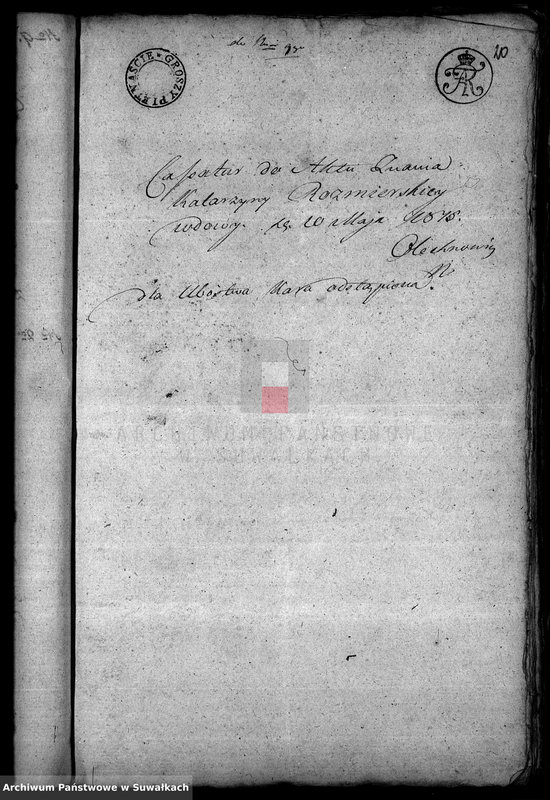 do Nru 9go
20
GROSZY PIETNAŚCIE
Casseatur do Aktu Znania
Katarzyny Rozmierskiey
wdowy. D. 10 Maja
Olechnowicz
dla Ubóstwa Kara odstąpiona
ARCHIWUM PAŃSTWOWE
W SUWAŁKACH
Archiwum Państwowe w Suwałkach